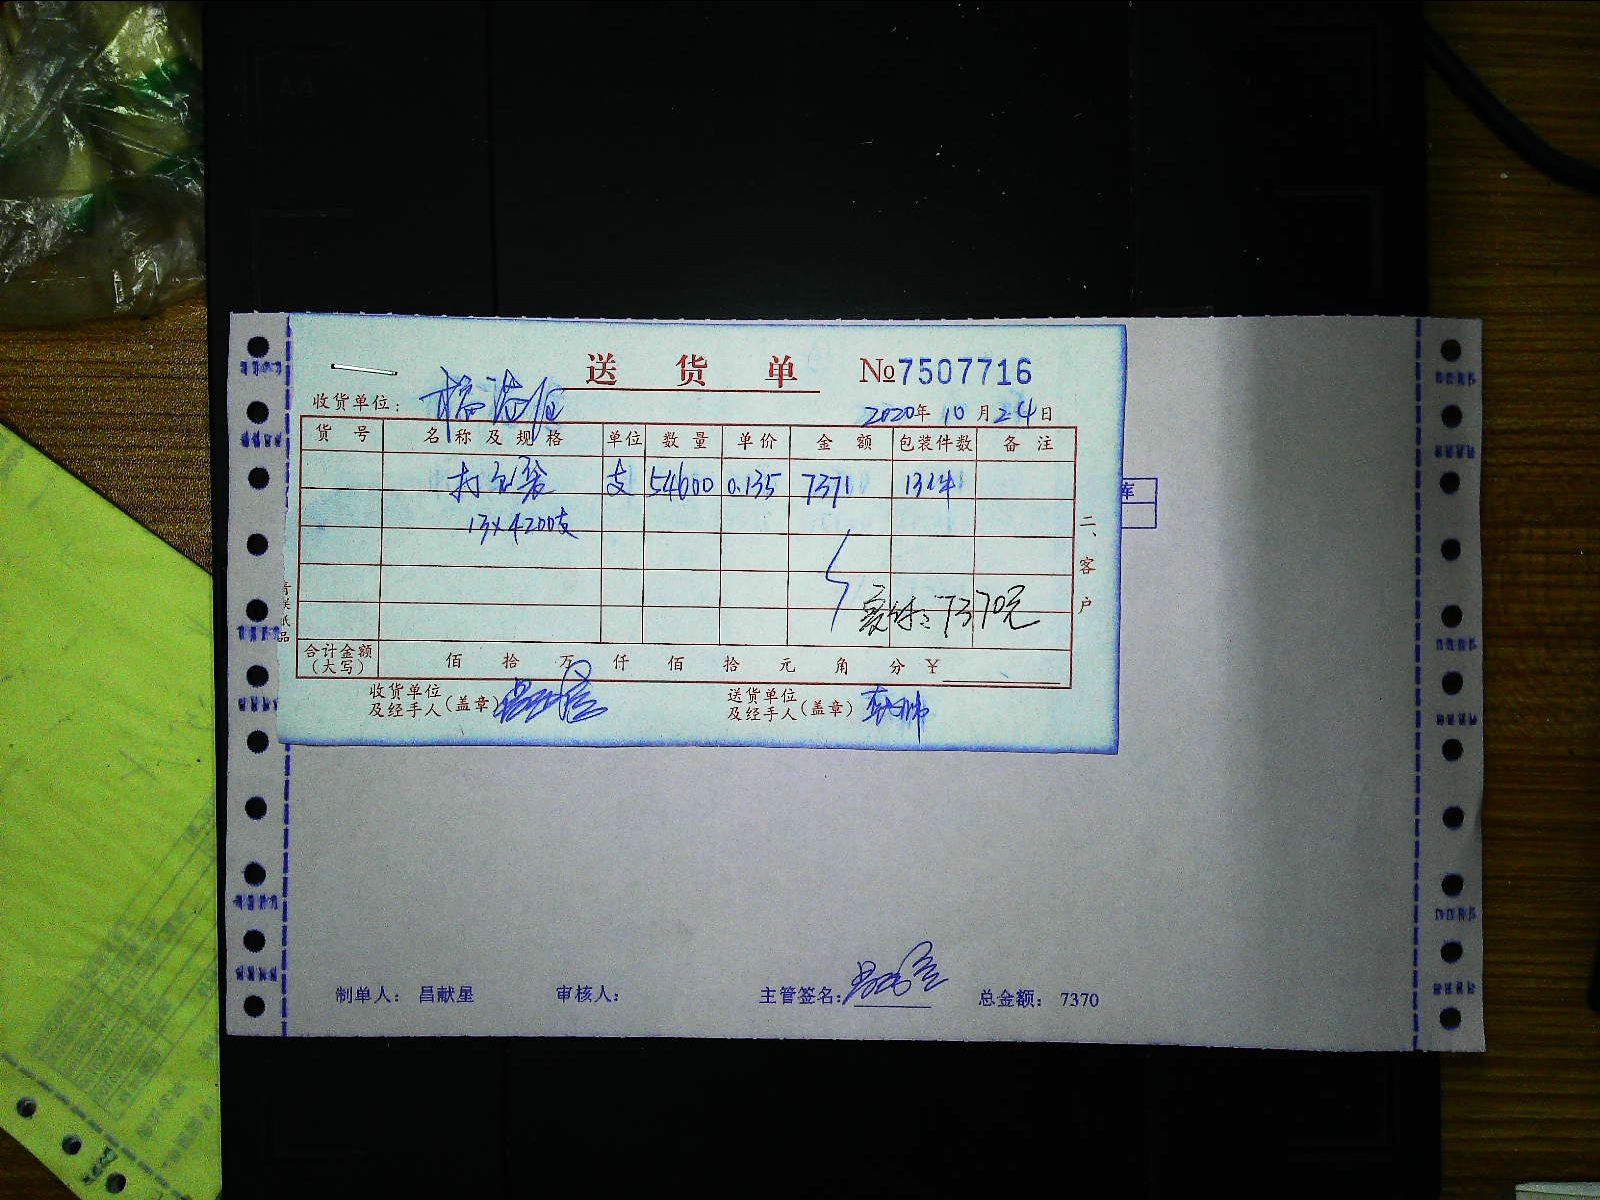 送 货 单 №7507716
收货单位：
2020年 10月24日
货 号 名 称 及 规 格 单位 数 量 单价 金 额 包装件数 备 注
支 54600 0.135 7371 13件
13×4200支
实付：7370元
二、客户
合计金额（大写） 佰 拾 万 仟 佰 拾 元 角 分 ￥
收货单位及经手人（盖章）
送货单位及经手人（盖章）
库
制单人： 昌献星 审核人： 主管签名： 总金额： 7370